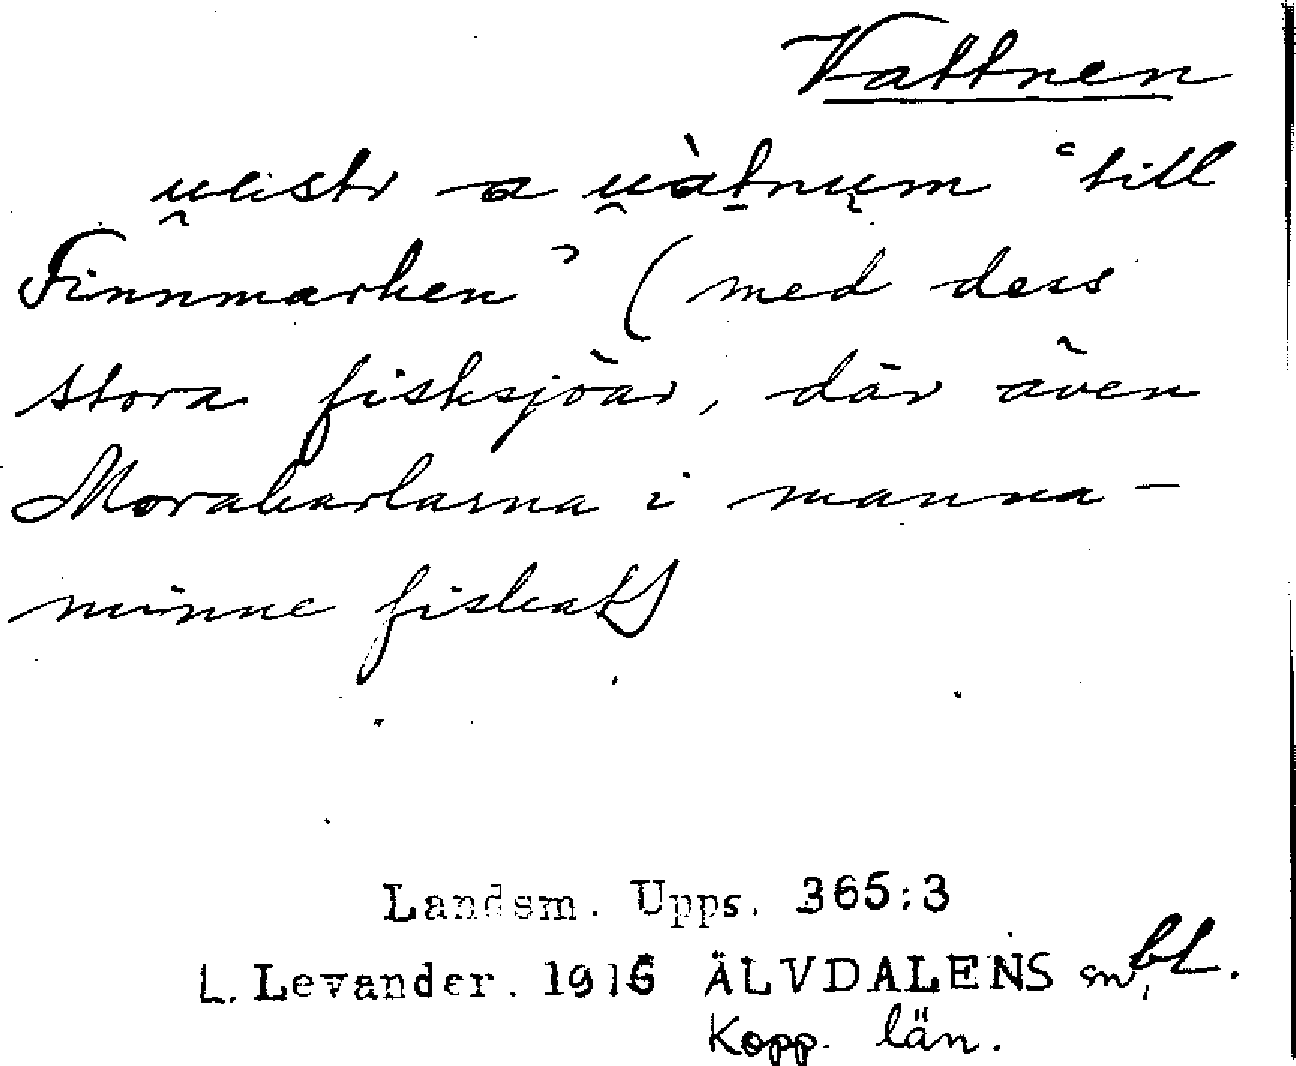 Vattnen
u̯eistr a u̯àtnum ‘till
Finnmarken’ (med dess
stora fisksjöar, där även
Morakarlarna i manna-
minne fiskat)
Landsm. Upps. 365:3
L. Levander. 1916 ÄLVDALENS sn, bl.
Kopp. län.